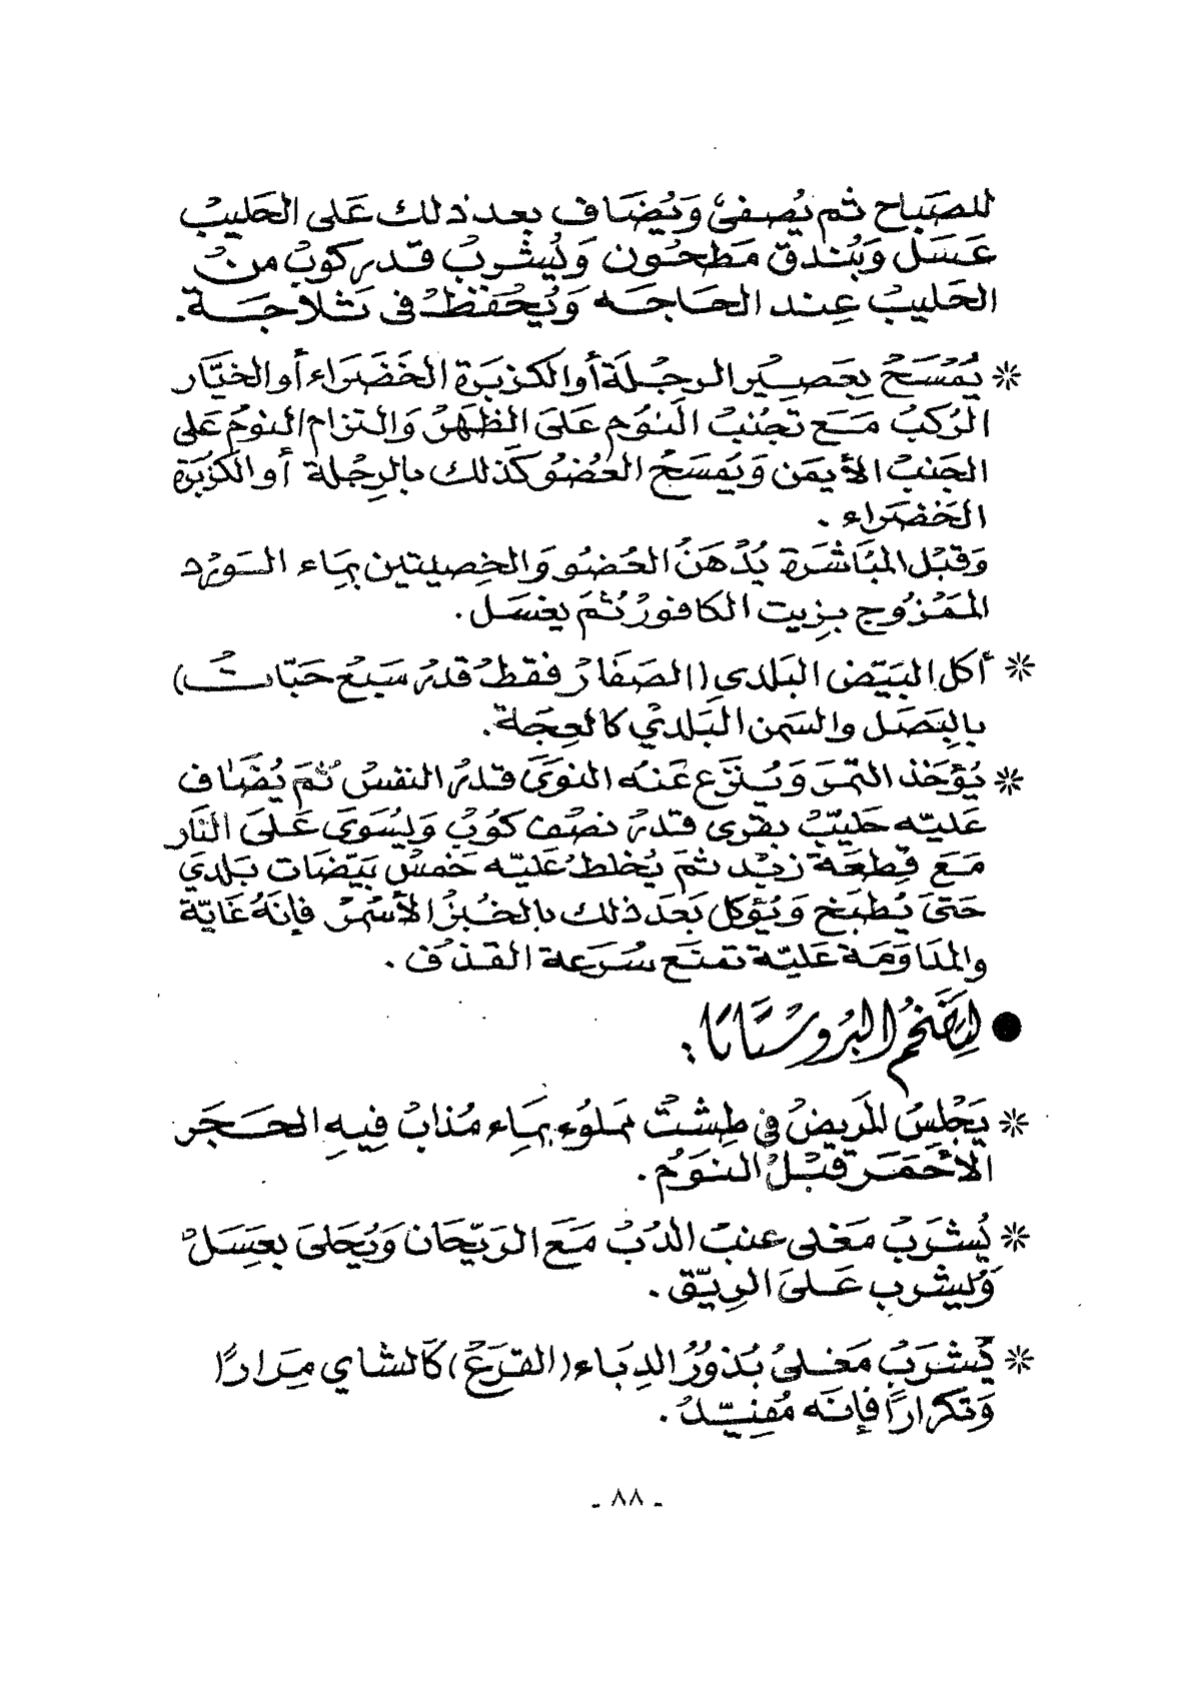 للصباح ثم يُصفى وَيُضَاف بعد ذلك عَلى الحَليبْ
عَسَل وَبُندق مَطحُون وَيُشربُ قدر كوبْ منْ
الحَليبْ عِند الحَاجَه وَيُحفَظْ فى ثلاجَة.
* يُمْسَحْ بِعَصِير الرجْلَة أو الكزبَرة الخَضَراء أو الخيَّار
الرُكَبُ مَعَ تجُنبْ النَوُم عَلىَ الظَهَرْ وَالتزام النومُ عَلى
الجَنبْ الأيمَن وَيمُسَحُ العُضوُ كَذلك بالرِجْلة أو الكزبَرة
الخَضرَاء .
وَقبْل المبَاشَرة يُدْهَنُ الحُضوُ وَالخِصيتين بمِاء الوَرْد
الممَزْوُج بزِيت الكافورْ ثمَ يغسَل .
* أكل البَيَض البَلدىِ (الصَفَارْ فقطْ قدرُ سَبعُ حَبّاتْ)
بالبَصَل والسَمن البَلديْ كالعِجَة.
* يُؤخَذ التمرَ وَيُنزَع عَنهُ النوىَ قدرُ النفسْ ثمَ يُضَاف
عَليَه حَليبْ بقرى قدرُ نصْف كَوُبْ وَيُسَوَىَ عَلىَ النَار
مَعَ قِطعَة زبْد ثمَ يُخلطْ عَليَه خَمسْ بَيَضَات بَلدىَ
حَتىَ يُطبَخ وَيُؤكل بَعَد ذلك بالخُبزْ الأسْمرْ فإنَهُ غَايَة
والمدَاوَمَة عَليَة تمنَع سُرَعة القذفْ .
● لِتَضَخُم البرُوسْتَاتَا :
* يَجْلِسُ المرَيضْ فيْ طِشتْ مملوُء بمِاء مُذابْ فِيهِ الحَجَر
الأحْمَر قبْلْ النوَمُ .
* يُشرَبْ مَغلى عنبْ الدُبْ مَعَ الرَيّحَان وَيُحَلىَ بعَسَلْ
وَيُشرب عَلىَ الرِيّق .
* يُشرَبُ مَغلىُ بُذوُرُ الدِبَاء (القرَعْ) كَالشاي مِرَارًا
وَتكَرارًا فإنَه مُفيِدْ .
- ٨٨ -